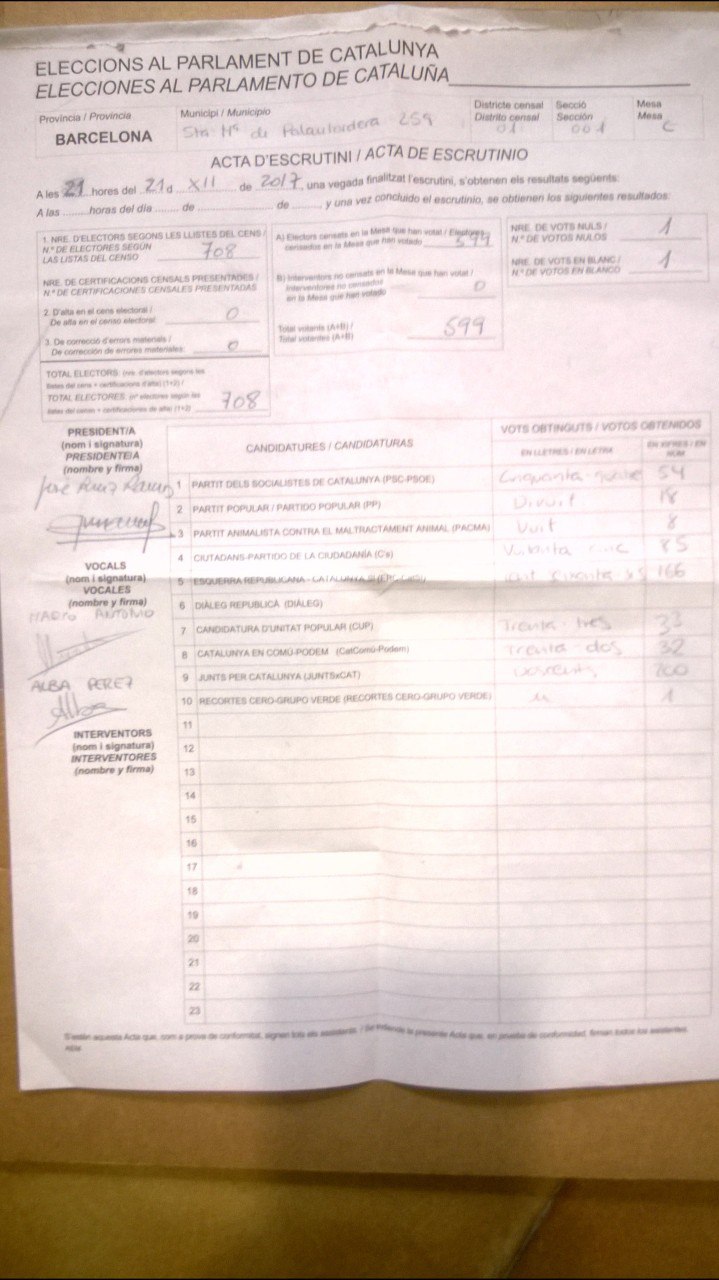 ELECCIONS AL PARLAMENT DE CATALUNYA
ELECCIONES AL PARLAMENTO DE CATALUÑA
Província / Provincia
BARCELONA
Municipi / Municipio
Sta Mª de Palautordera 259
Districte censal
Distrito censal
01
Secció
Sección
001
Mesa
Mesa
C
ACTA D'ESCRUTINI / ACTA DE ESCRUTINIO
A les 21 hores del 21 d XII de 2017, una vegada finalitzat l'escrutini, s'obtenen els resultats següents:
A las ........ horas del día ........ de ........ de ........ y una vez concluido el escrutinio, se obtienen los siguientes resultados:
1. NRE. D'ELECTORS SEGONS LES LLISTES DEL CENS /
N.º DE ELECTORES SEGÚN
LAS LISTAS DEL CENSO 708
NRE. DE CERTIFICACIONS CENSALS PRESENTADES /
N.º DE CERTIFICACIONES CENSALES PRESENTADAS
2. D'alta en el cens electoral /
De alta en el censo electoral: 0
3. De correcció d'errors materials /
De corrección de errores materiales: 0
TOTAL ELECTORS: (nre. d'electors segons les
llistes del cens + certificacions d'alta) (1+2) /
TOTAL ELECTORES: (nº electores según las
listas del censo + certificaciones de alta) (1+2) 708
A) Electors censats en la Mesa que han votat / Electores
censados en la Mesa que han votado 599
B) Interventors no censats en la Mesa que han votat /
Interventores no censados
en la Mesa que han votado 0
Total votants (A+B) /
Total votantes (A+B) 599
NRE. DE VOTS NULS /
N.º DE VOTOS NULOS 1
NRE. DE VOTS EN BLANC /
N.º DE VOTOS EN BLANCO 1
PRESIDENT/A
(nom i signatura)
PRESIDENTE/A
(nombre y firma)
José Ruiz
VOCALS
(nom i signatura)
VOCALES
(nombre y firma)
ANTONIO
ALBA PEREZ
Alba
INTERVENTORS
(nom i signatura)
INTERVENTORES
(nombre y firma)
CANDIDATURES / CANDIDATURAS
VOTS OBTINGUTS / VOTOS OBTENIDOS
EN LLETRES / EN LETRA
EN XIFRES / EN NÚM
1 PARTIT DELS SOCIALISTES DE CATALUNYA (PSC-PSOE) Cinquanta-quatre 54
2 PARTIT POPULAR / PARTIDO POPULAR (PP) Divuit 18
3 PARTIT ANIMALISTA CONTRA EL MALTRACTAMENT ANIMAL (PACMA) Vuit 8
4 CIUTADANS-PARTIDO DE LA CIUDADANÍA (C's) Vuitanta cinc 85
5 ESQUERRA REPUBLICANA - CATALUNYA SÍ (ERC-CatSí) 166
6 DIÀLEG REPUBLICÀ (DIÀLEG)
7 CANDIDATURA D'UNITAT POPULAR (CUP) Trenta-tres 33
8 CATALUNYA EN COMÚ-PODEM (CatComú-Podem) Trenta-dos 32
9 JUNTS PER CATALUNYA (JUNTSxCAT) 200
10 RECORTES CERO-GRUPO VERDE (RECORTES CERO-GRUPO VERDE) 1
11
12
13
14
15
16
17
18
19
20
21
22
23